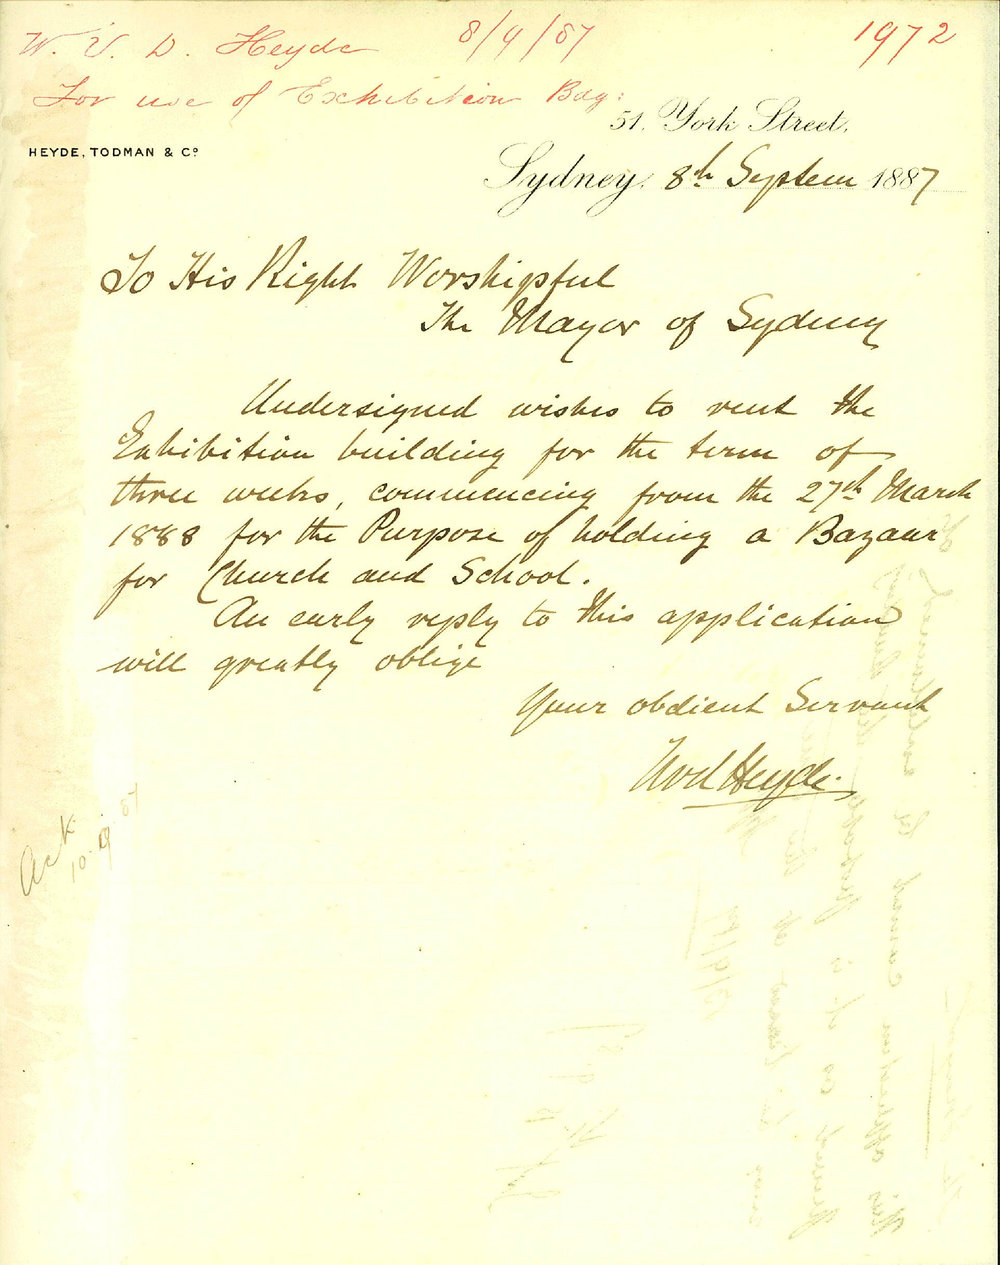 W. V. D. Heyde 8/9/87 1972
For use of Exhibition Bdg:
51. York Street,
HEYDE, TODMAN & Co
Sydney, 8th Septem 1887
To His Right Worshipful
The Mayor of Sydney
Undersigned wishes to rent the
Exhibition building for the term of
three weeks, commencing from the 27th March
1888 for the Purpose of holding a Bazaar
for Church and School.
An early reply to this application
will greatly oblige
Your obdient Servant
WvdHeyde.
Ack
10.9.87